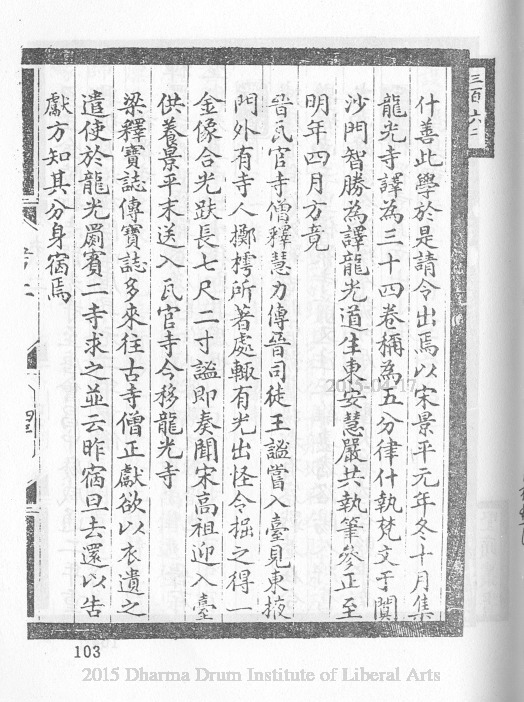 三百六二
什善此學於是請令出焉以宋景平元年冬十月集
龍光寺譯為三十四卷稱為五分律什執梵文于闐
沙門智勝為譯龍光道生東安慧嚴共執筆參正至
明年四月方竟
晉瓦官寺僧釋慧力傳晉司徒王謐嘗入臺見東掖
門外有寺人擲樗所著處輙有光出怪令掘之得一
金像合光趺長七尺二寸謐即奏聞宋高祖迎入臺
供養景平末送入瓦官寺今移龍光寺
梁釋寶誌傳寶誌多來往古寺僧正獻欲以衣遺之
遣使於龍光罽賓二寺求之並云昨宿旦去還以告
獻方知其分身宿焉
103
2015-04-17
2015 Dharma Drum Institute of Liberal Arts